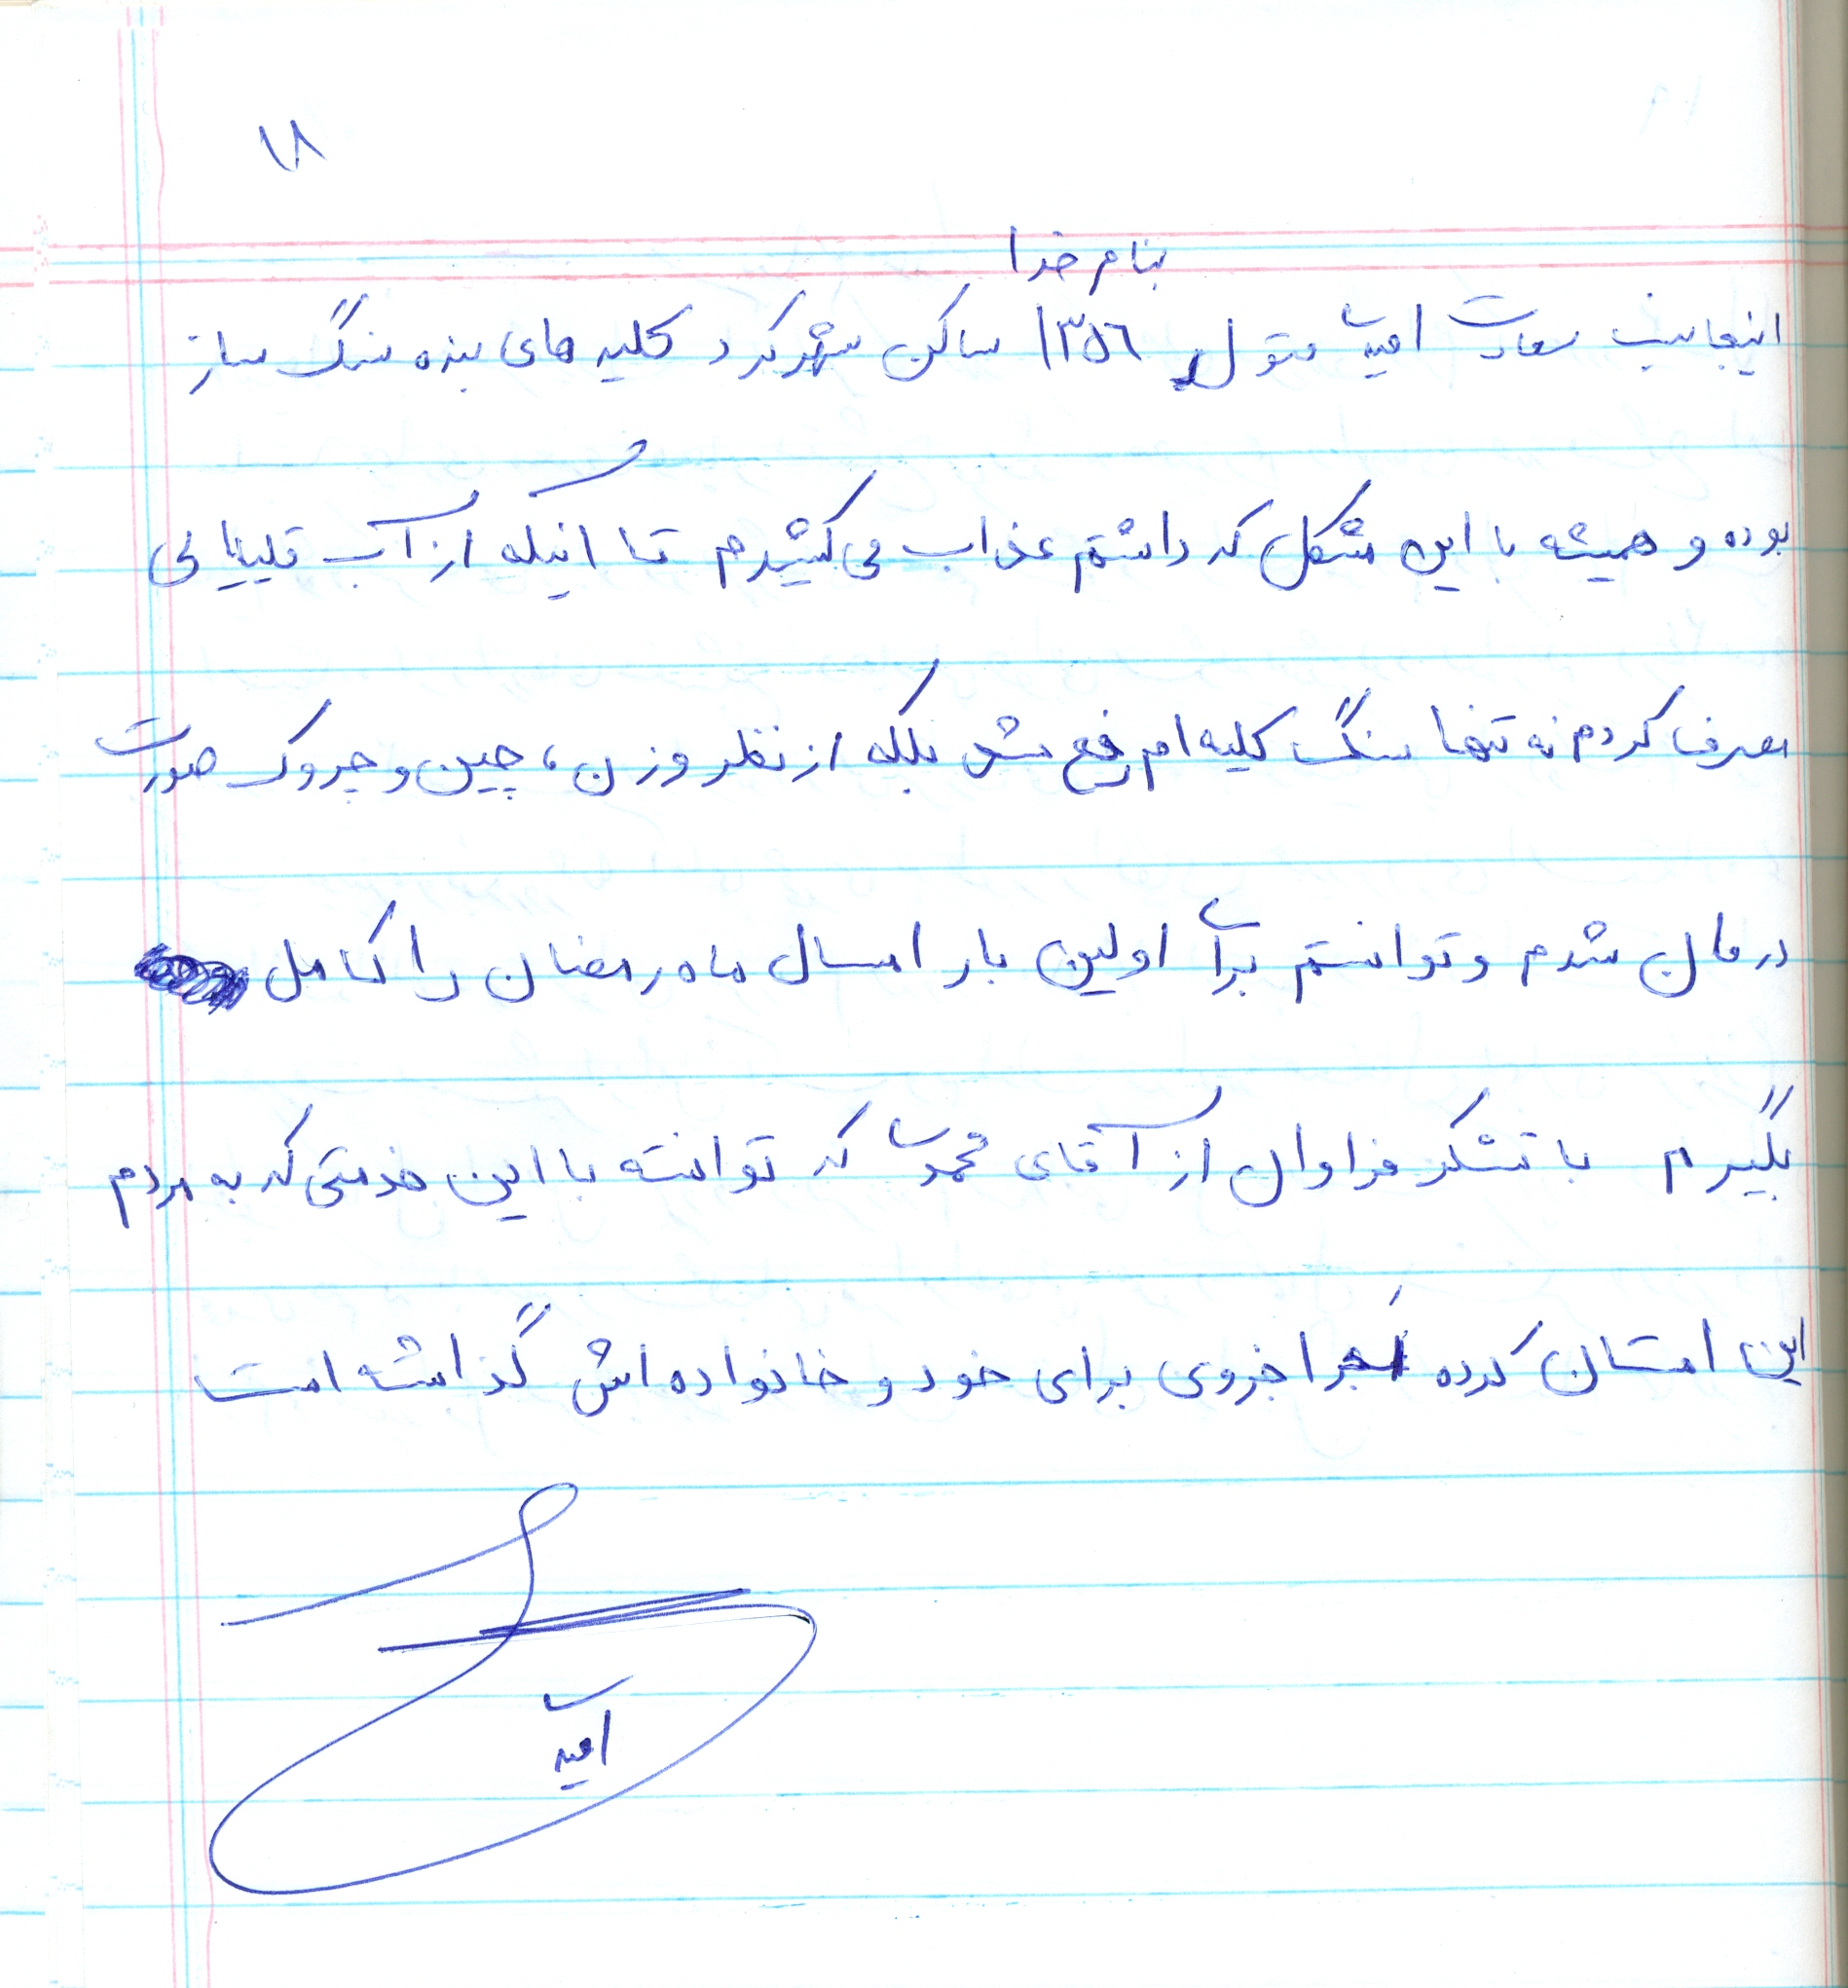 ۱۸
بنام خدا
اینجانب سعادت امیدی متولد ۱۳۵۶ ساکن شهرکرد کلیه های بنده سنگ ساز
بوده و همیشه با این مشکل که داشتم عذاب می کشیدم تا اینکه از آب قلیایی
مصرف کردم نه تنها سنگ کلیه ام رفع شد بلکه از نظر وزن، چین و چروک صورت
درمان شدم و توانستم برای اولین بار امسال ماه رمضان را کامل
بگیرم با تشکر فراوان از آقای محمودی که توانسته با این خدمتی که به مردم
این استان کرده اجر اخروی برای خود و خانواده اش گذاشته است
امیدی